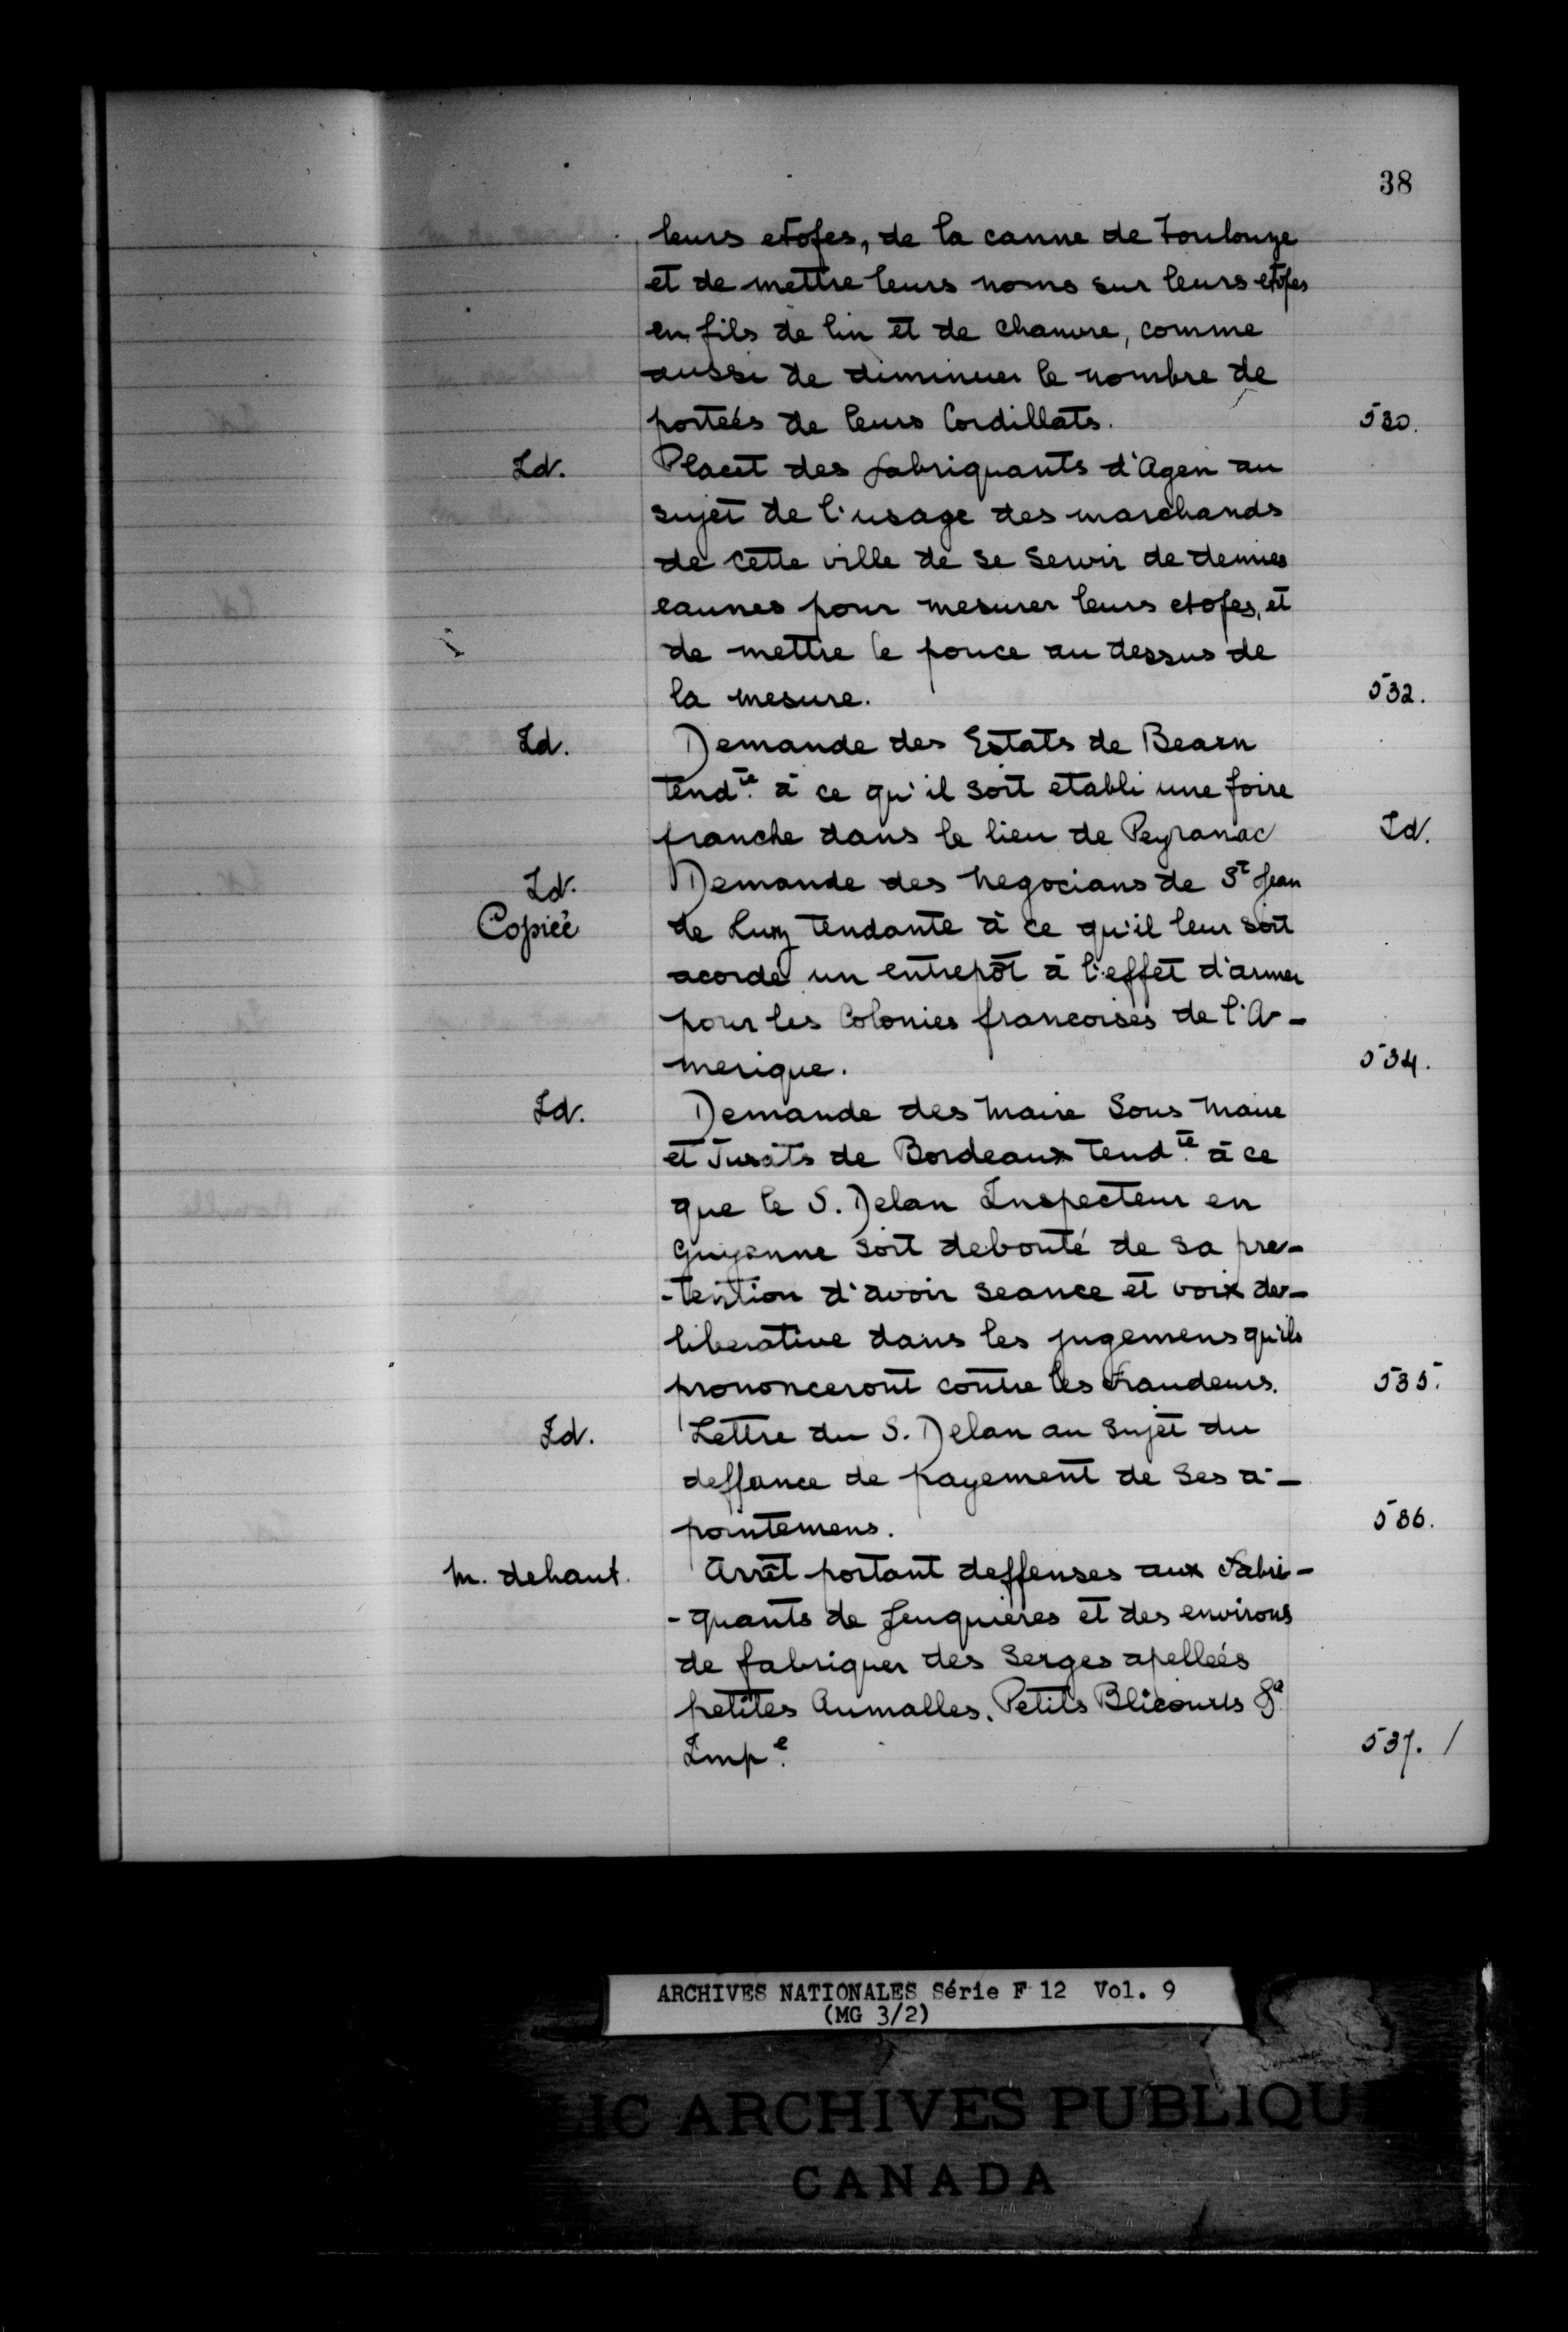 38
leurs etofes, de la canne de Toulouze
et de mettre leurs noms sur leurs etofes
en fils de lin et de chanvre, comme
aussi de diminuer le nombre de
porteés de leurs Cordillats. 530.
Id. Placet des fabriquants d'Agen au
sujet de l'usage des marchands
de cette ville de se servir de demies
caunes pour mesurer leurs etofes, et
de mettre le pouce au dessus de
la mesure. 532.
Id. Demande des Estats de Bearn
tend.te à ce qu'il soit etabli une foire
franche dans le lieu de Peyranac Id.
Id. Demande des negocians de St Jean
Copiée de Luz tendante à ce qu'il leur soit
acordé un entrepôt à l'effet d'armer
pour les Colonies francoises de l'A-
merique. 534.
Id. Demande des Maire Sous Maire
et Jurats de Bordeaux tend.te à ce
que le S. Delan Inspecteur en
Guyenne soit debouté de sa pre-
-tention d'avoir seance et voix de-
liberative dans les jugemens qu'ils
prononceront contre les fraudeurs. 535.
Id. Lettre du S. Delan au sujet du
deffance de payement de ses a-
pointemens. 536.
M. dehaut. Arrêt portant deffenses aux Fabri-
-quants de Feuquieres et des environs
de fabriquer des Serges apelleés
petites Aumalles, Petits Blicourts &a
Imp.e 537. /
ARCHIVES NATIONALES Série F 12 Vol. 9
(MG 3/2)
LIC ARCHIVES PUBLIQU
CANADA